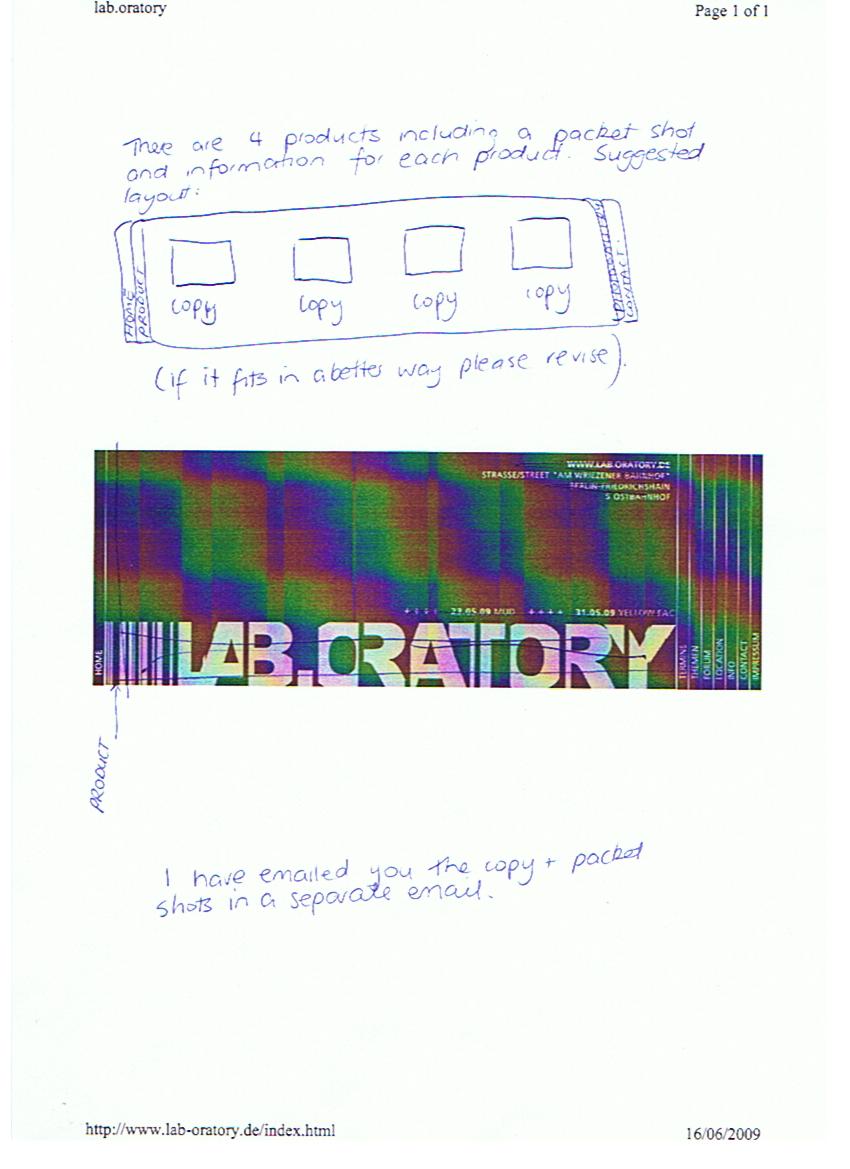 lab.oratory
Page 1 of 1
There are 4 products including a packet shot
and information for each product. Suggested
layout:
HOME
PRODUCT
copy
copy
copy
copy
CONTACT.
(if it fits in a better way please revise).
WWW.LAB.ORATORY.DE
STRASSE/STREET "AM WRIEZENER BAHNHOF"
BERLIN-FRIEDRICHSHAIN
S OSTBAHNHOF
++++ 23.05.09 MUD ++++ 31.05.09 YELLOW FAC
HOME
LAB.ORATORY
TERMINE
THEMEN
FORUM
LOCATION
INFO
CONTACT
IMPRESSUM
PRODUCT
I have emailed you the copy + packet
shots in a separate email.
http://www.lab-oratory.de/index.html
16/06/2009